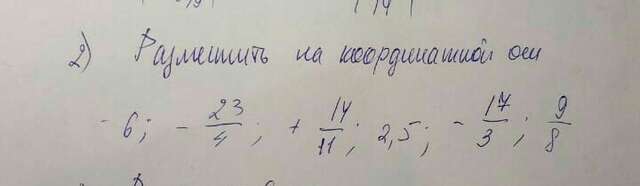 2) Разместить на координатной оси
- 6; - 23/4; + 14/11; 2,5; - 17/3; 9/8